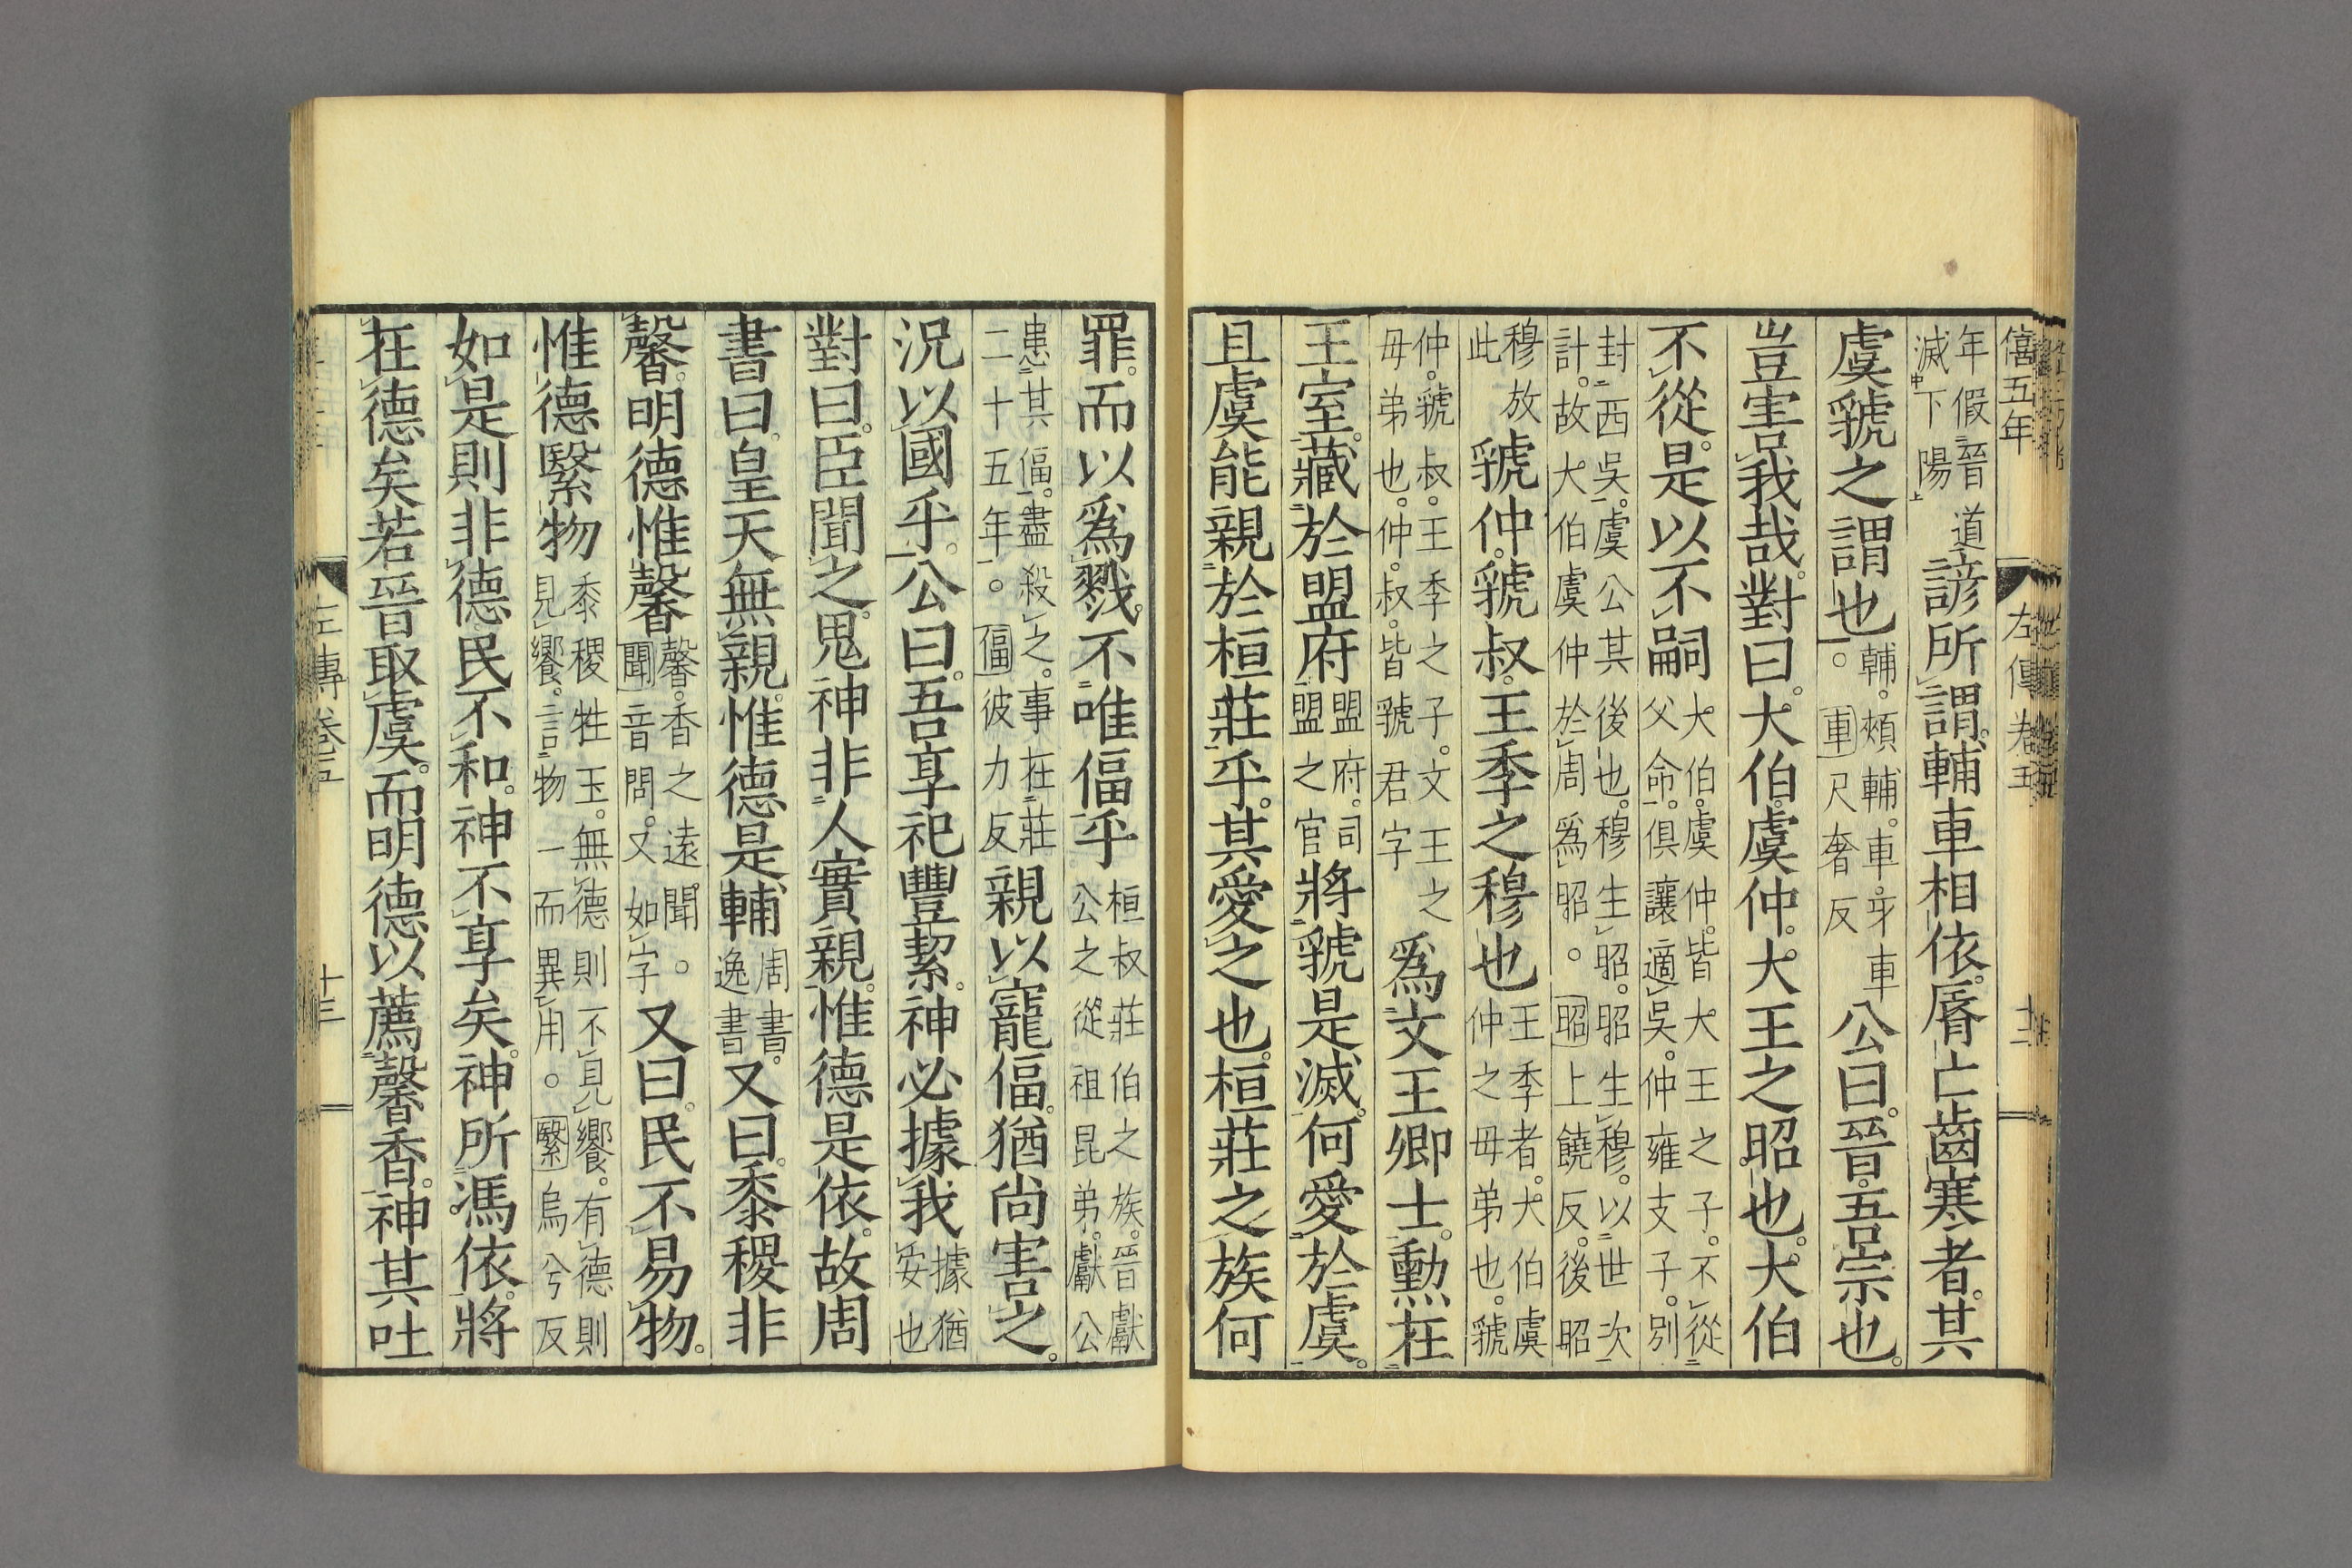 僖五年 左傳卷五 十二
年假晉道滅下陽諺所謂輔車相依脣亡齒寒者其
虞虢之謂也輔頰輔車牙車車尺奢反公曰晉吾宗也
豈害我哉對曰大伯虞仲大王之昭也大伯
不從是以不嗣大伯虞仲皆大王之子不從父命俱讓適吳仲雍支子別
封西吳虞公其後也穆生昭昭生穆以世次計故大伯虞仲於周爲昭昭上饒反後昭
穆放此虢仲虢叔王季之穆也王季者大伯虞仲之母弟也虢
仲虢叔王季之子文王之母弟也仲叔皆虢君字爲文王卿士勳在
王室藏於盟府盟府司盟之官將虢是滅何愛於虞
且虞能親於桓莊乎其愛之也桓莊之族何
罪而以爲戮不唯偪乎桓叔莊伯之族晉獻公之從祖昆弟獻公
患其偪盡殺之事在莊二十五年偪彼力反親以寵偪猶尚害之
況以國乎公曰吾享祀豐絜神必據我據猶安也
對曰臣聞之鬼神非人實親惟德是依故周
書曰皇天無親惟德是輔周書逸書又曰黍稷非
馨明德惟馨馨香之遠聞聞音問又如字又曰民不易物
惟德繄物黍稷牲玉無德則不見饗有德則見饗言物一而異用繄烏兮反
如是則非德民不和神不享矣神所馮依將
在德矣若晉取虞而明德以薦馨香神其吐
左傳卷五 十三